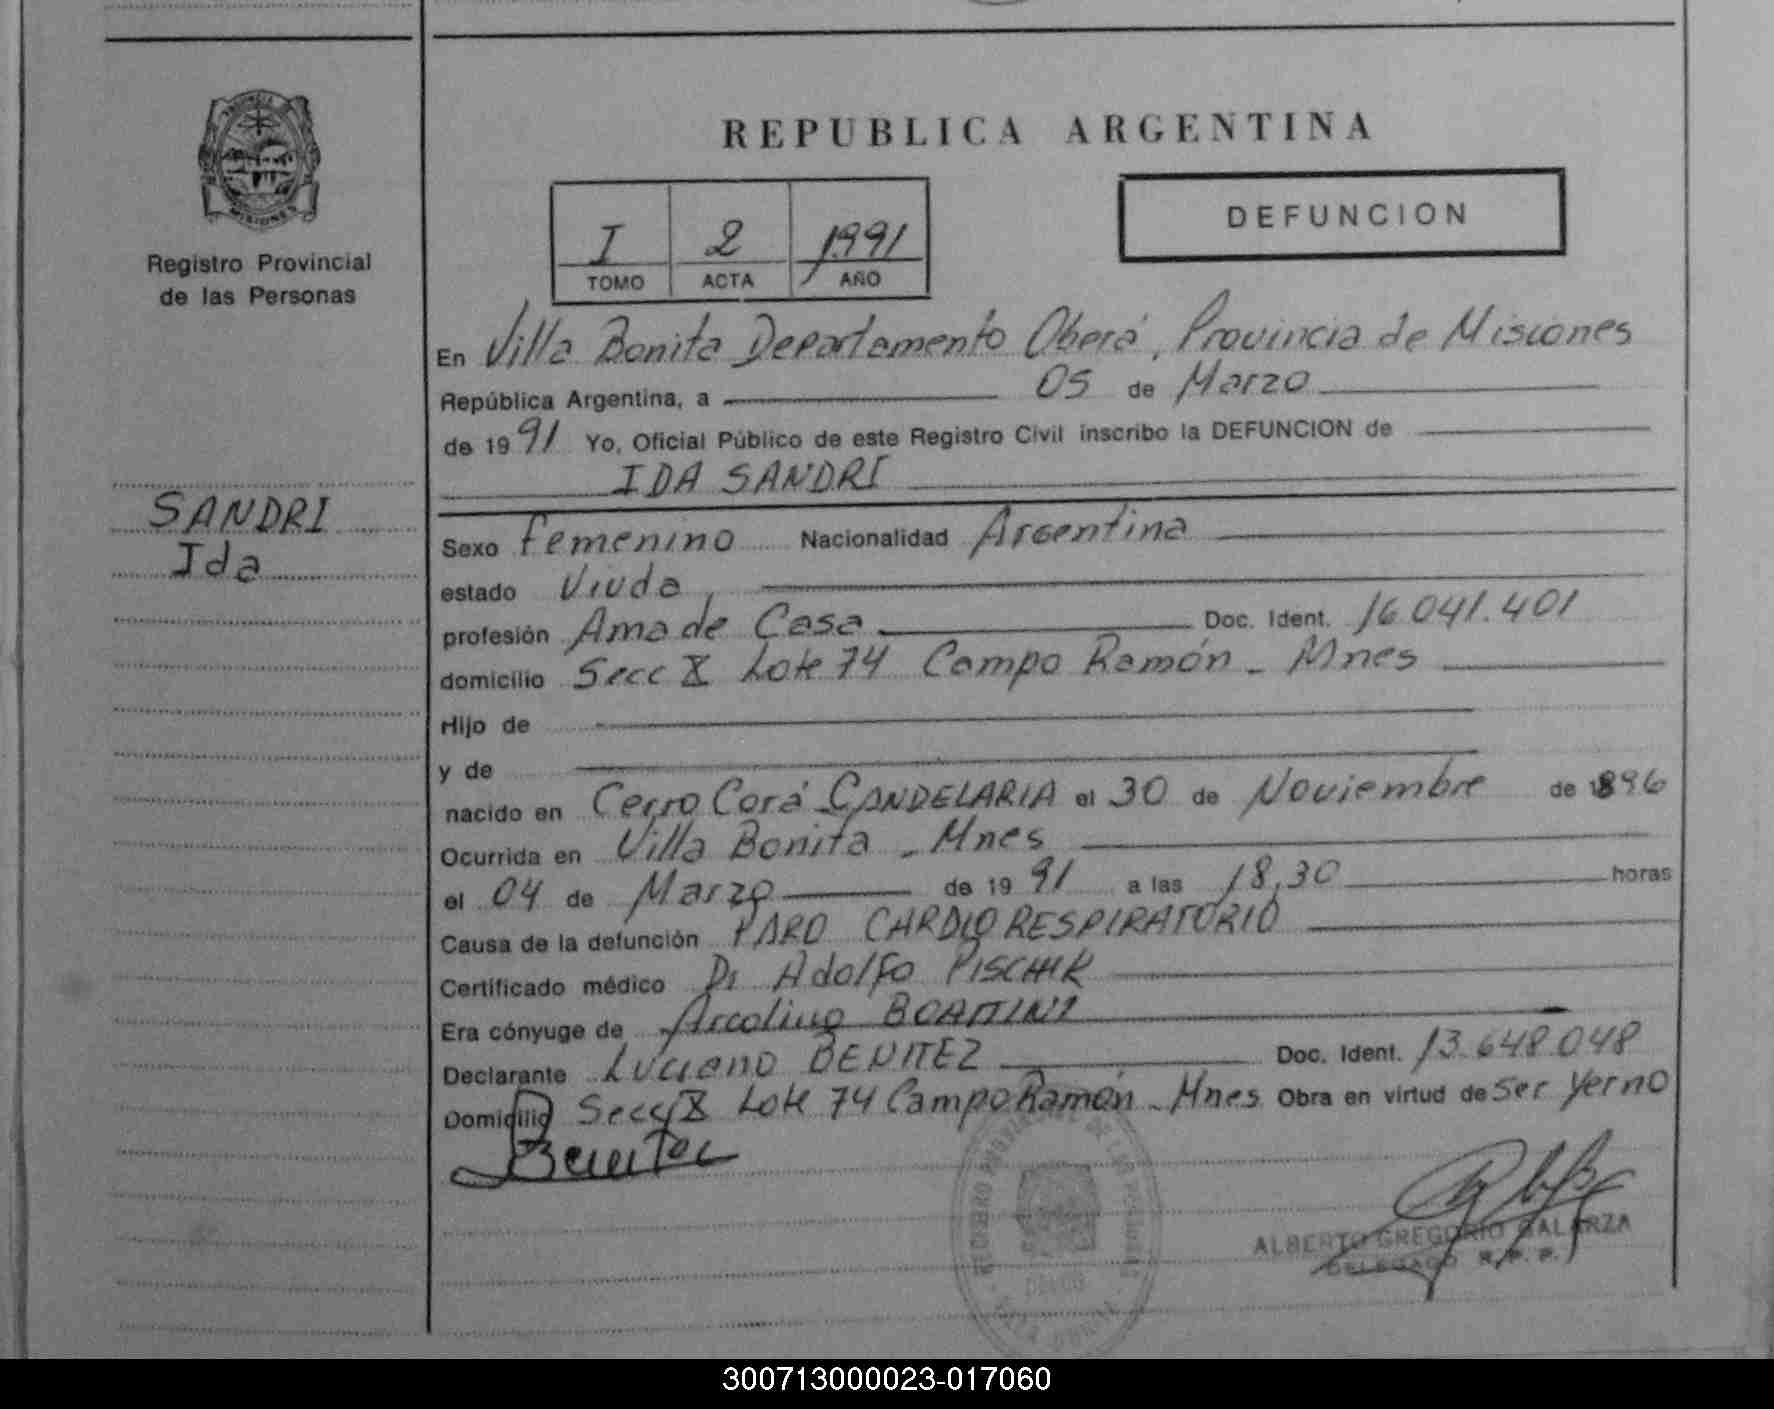 REPUBLICA ARGENTINA
PROVINCIA DE
MISIONES
Registro Provincial
de las Personas
I 2 1991
TOMO ACTA AÑO
DEFUNCION
En Villa Bonita Departamento Oberá, Provincia de Misiones
República Argentina, a 05 de Marzo
de 1991 Yo, Oficial Público de este Registro Civil inscribo la DEFUNCION de
IDA SANDRI
SANDRI
Ida
Sexo Femenino Nacionalidad Argentina
estado Viuda
profesión Ama de Casa Doc. Ident. 16.041.401
domicilio Secc X Lote 74 Campo Ramón - Mnes
Hijo de
y de
nacido en Cerro Corá CANDELARIA el 30 de Noviembre de 1896
Ocurrida en Villa Bonita - Mnes
el 04 de Marzo de 1991 a las 18,30 horas
Causa de la defunción PARO CARDIO RESPIRATORIO
Certificado médico Dr Adolfo
Era cónyuge de
Declarante Luciano BENITEZ Doc. Ident. 13.648.048
Domicilio Secc X Lote 74 Campo Ramón - Mnes Obra en virtud de Ser Yerno
Benitez
ALBERTO GREGORIO GALARZA
DELEGADO R.P.P.
300713000023-017060